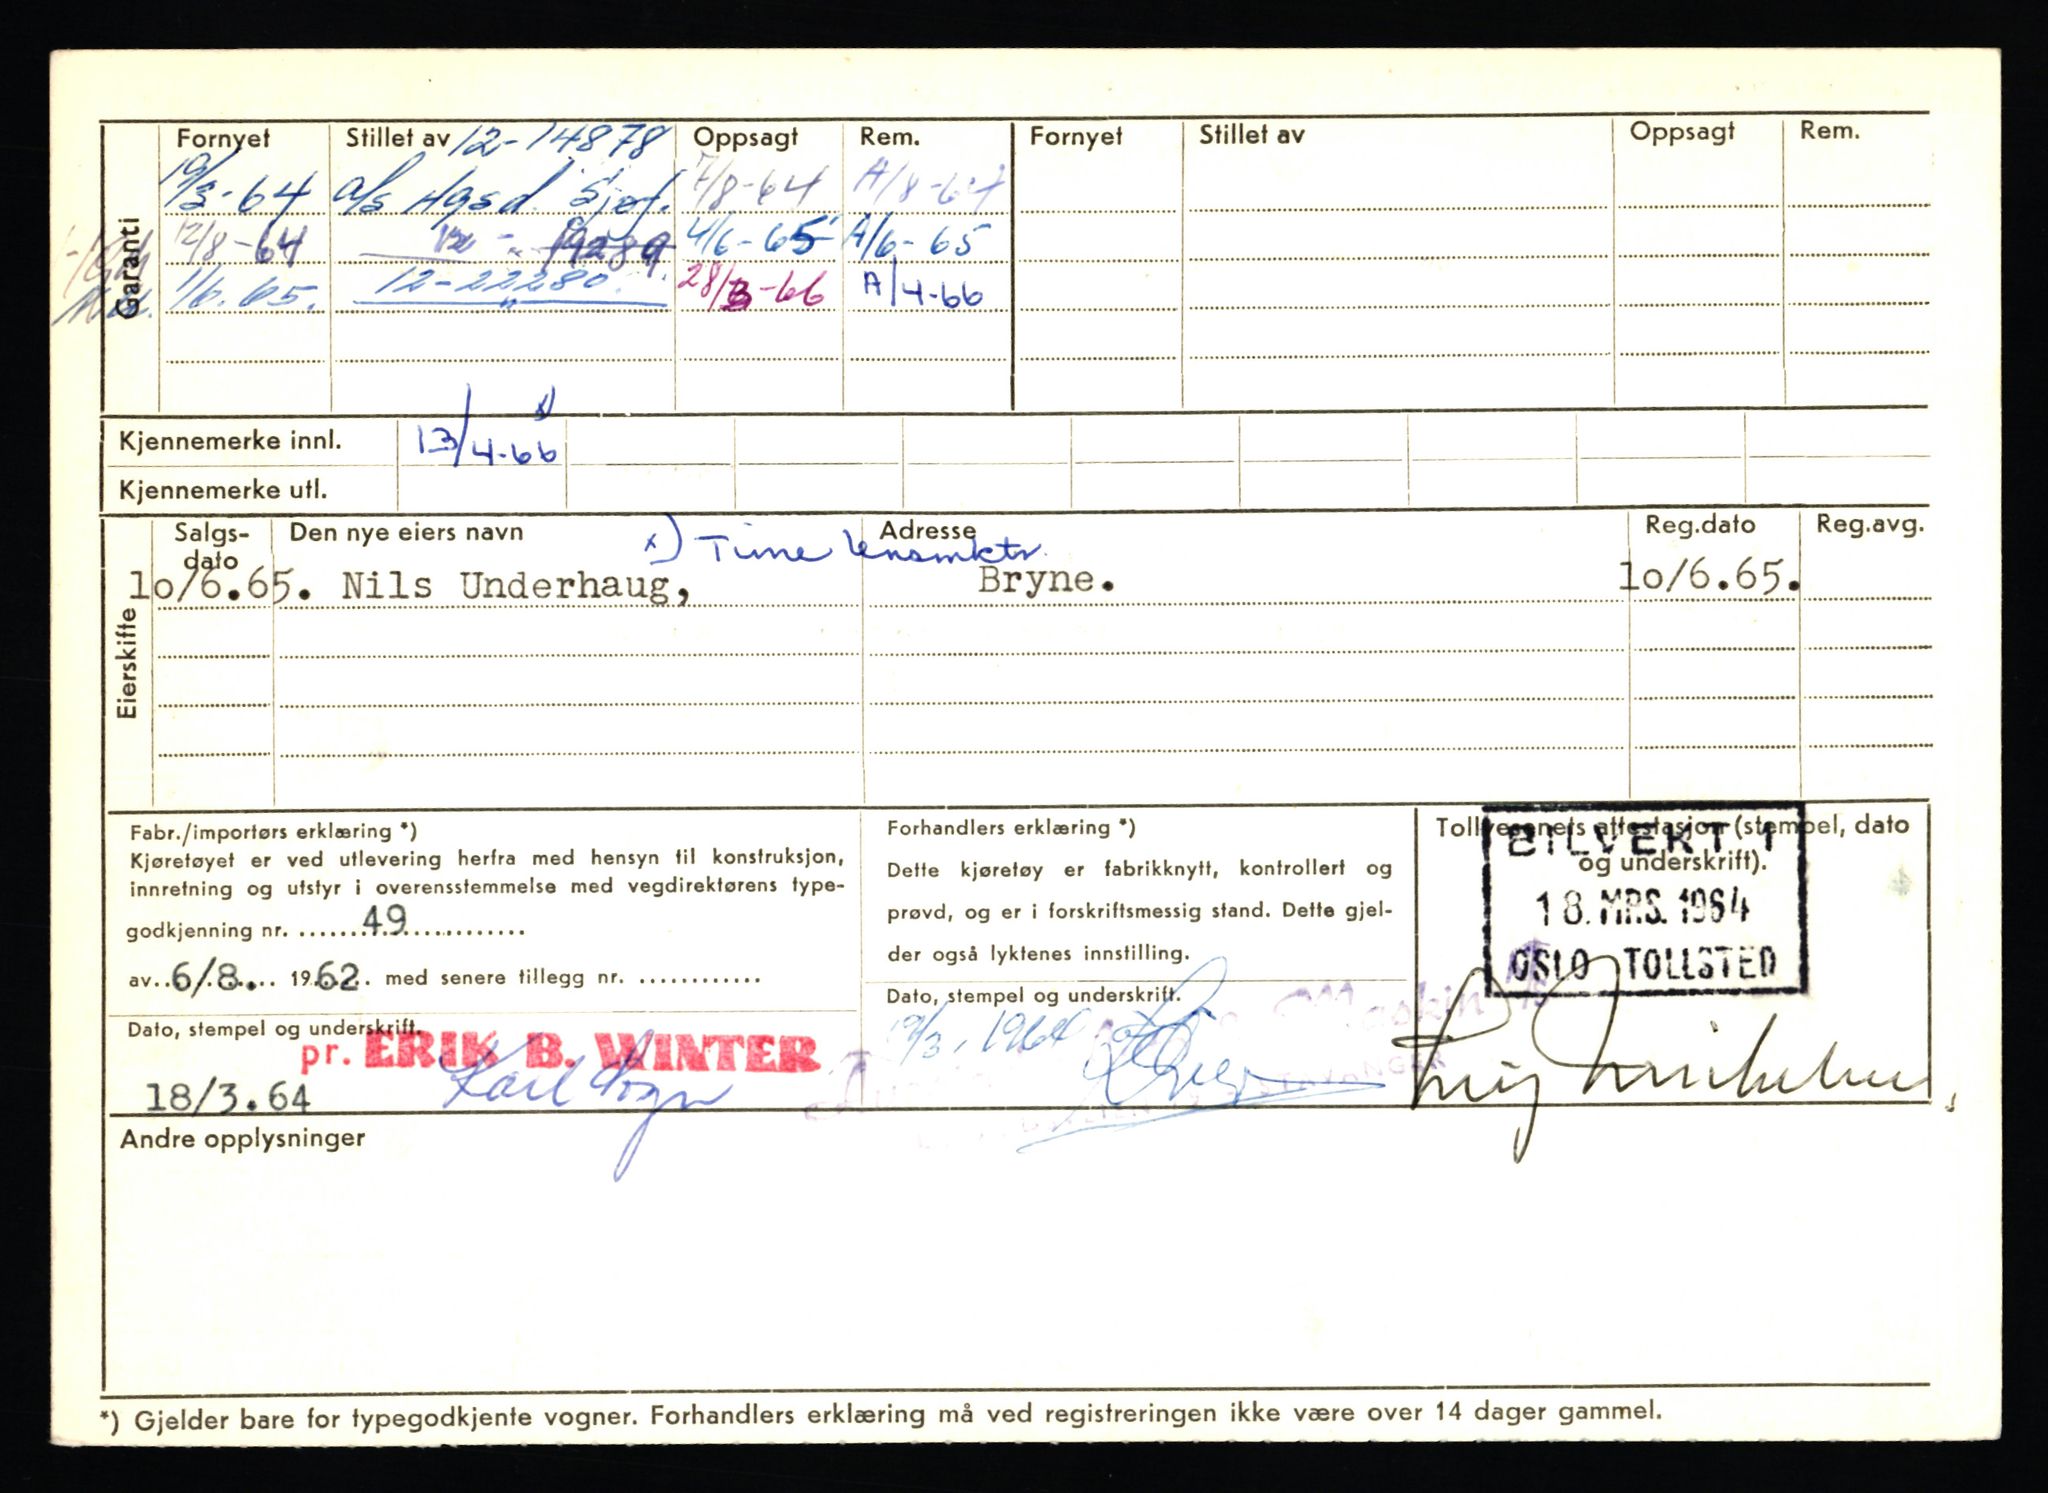 Garanti
Fornyet Stillet av 12-14878 Oppsagt Rem. Fornyet Stillet av Oppsagt Rem.
19/3-64 a/s Hgsd. Sjøf. 7/8-64 A/8-64
12/8-64 19289 4/6-65 A/6-65
1/6.65. 12-22280 28/3-66 A/4-66
Kjennemerke innl. 13/4-66 x)
Kjennemerke utl.
Eierskifte
Salgs-dato Den nye eiers navn Adresse Reg.dato Reg.avg.
x) Time lensmktr.
10/6.65. Nils Underhaug, Bryne. 10/6.65.
Fabr./importørs erklæring *)
Kjøretøyet er ved utlevering herfra med hensyn til konstruksjon,
innretning og utstyr i overensstemmelse med vegdirektørens type-
godkjenning nr. 49
av 6/8. 1962 med senere tillegg nr.
Dato, stempel og underskrift.
pr. ERIK B. WINTER
18/3.64
Forhandlers erklæring *)
Dette kjøretøy er fabrikknytt, kontrollert og
prøvd, og er i forskriftsmessig stand. Dette gjel-
der også lyktenes innstilling.
Dato, stempel og underskrift.
19/3. 1964
Maskin A/S
STAVANGER
Tollvesenets attestasjon (stempel, dato
og underskrift).
BILVEKT 1
18. MRS. 1964
OSLO TOLLSTED
Andre opplysninger
*) Gjelder bare for typegodkjente vogner. Forhandlers erklæring må ved registreringen ikke være over 14 dager gammel.